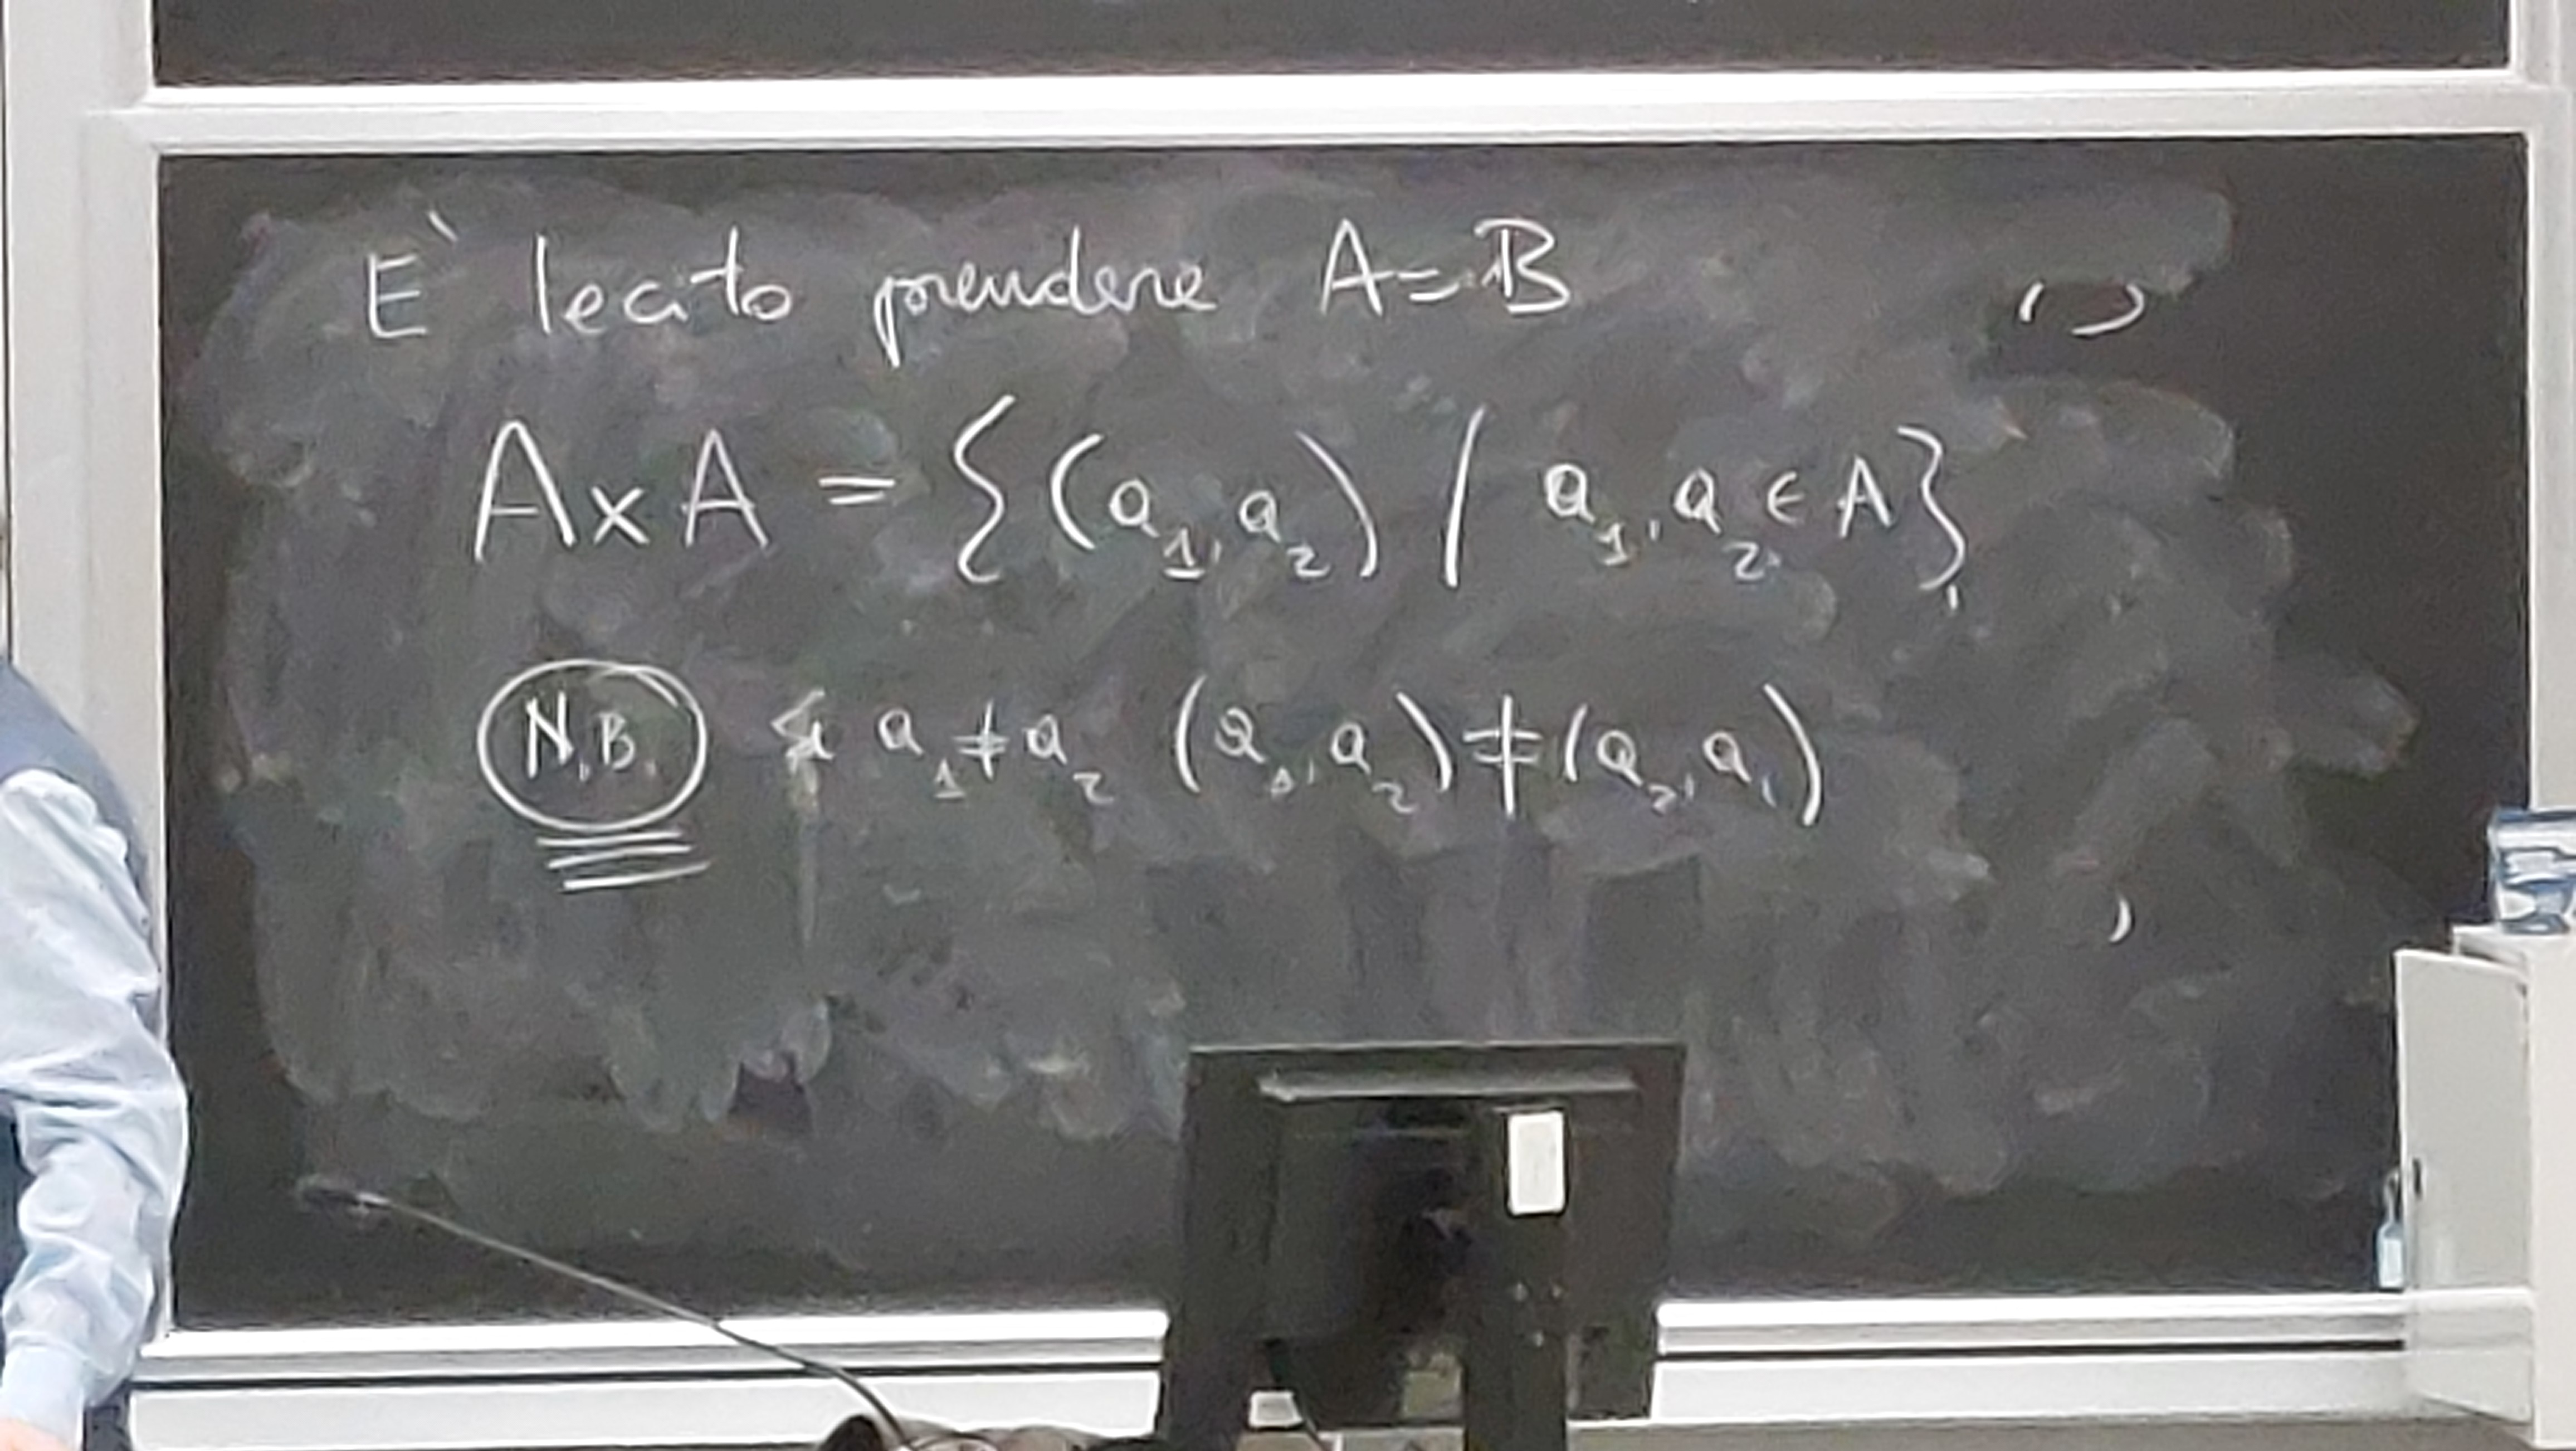 E` lecito prendere A=B
A×A = {(a₁, a₂) / a₁, a₂ ∈ A}
N.B. Se a₁≠a₂ (a₁, a₂)≠(a₂, a₁)